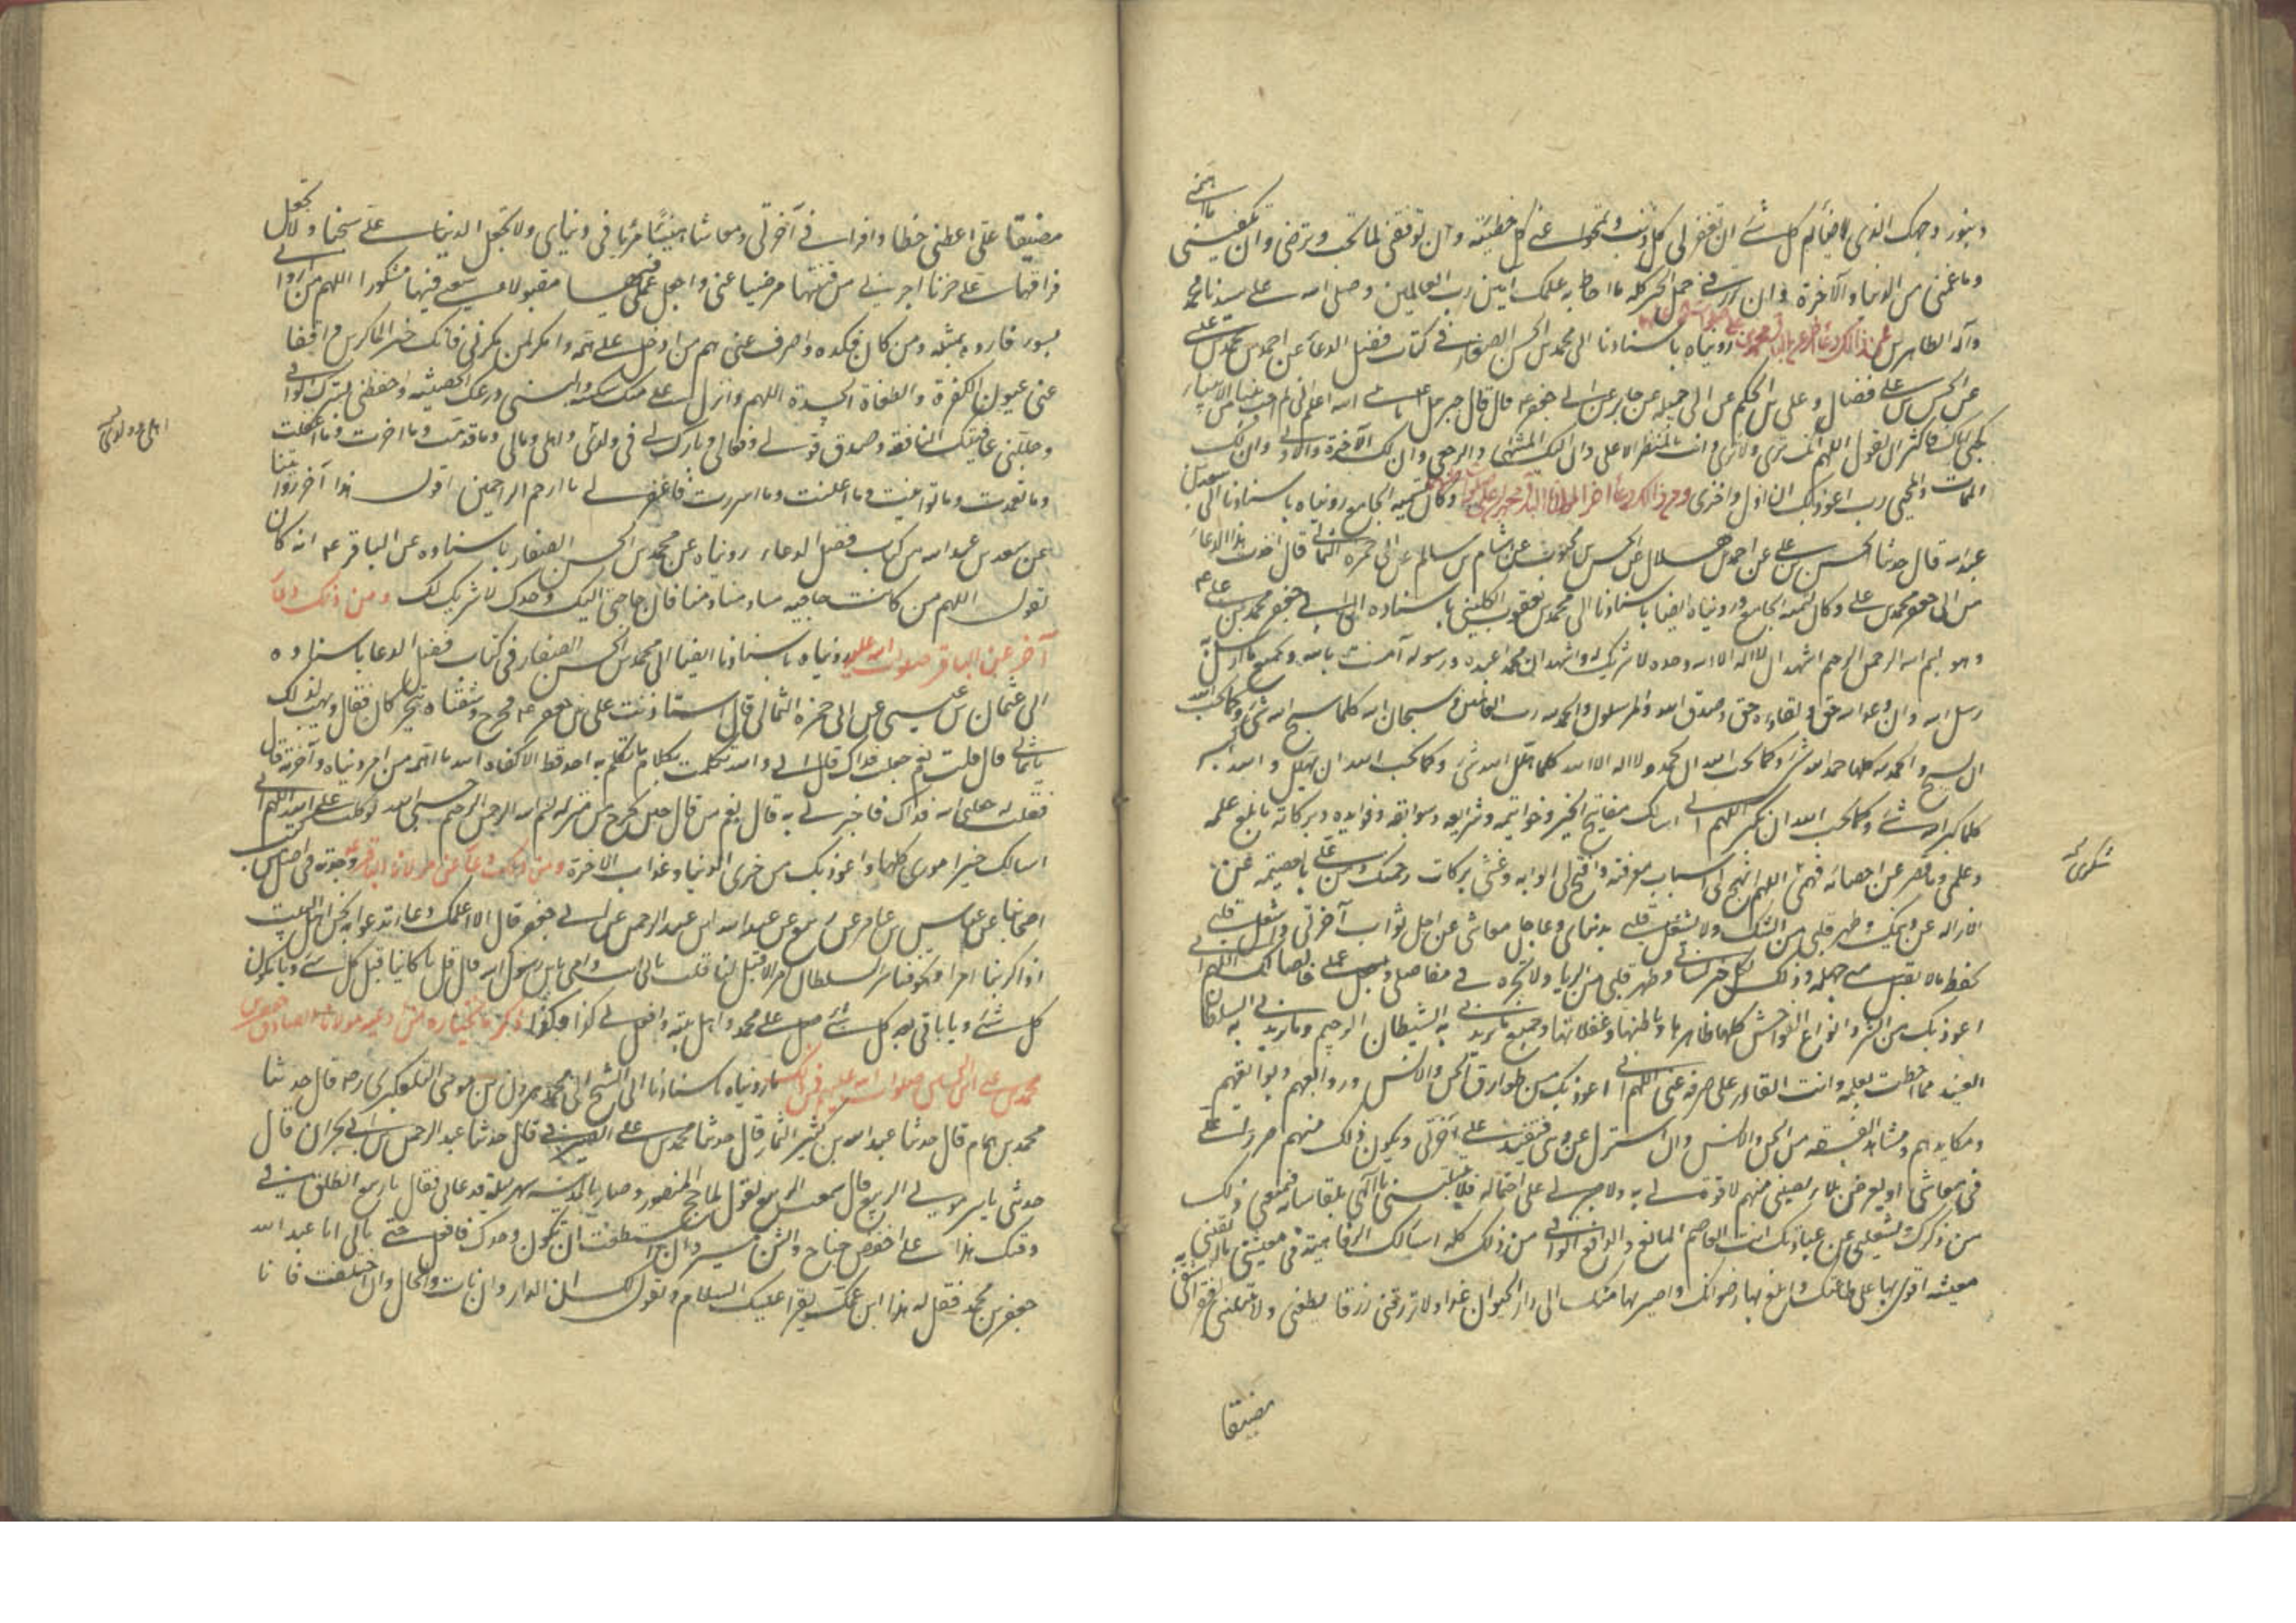 وبنور وجهك الذي لا ضآئم كل شئ ان تغفر لي كل ذنب وتمحوا عني كل خطيئة وان توفقني لما تحب وترضى وان تكفيني ما اهمني
وما غمني من الدنيا والآخرة وان ترزقني خير كله ما احاط به علمك آمين رب العالمين وصلى الله على سيدنا محمد
وآله الطاهرين رويناه باسنادنا الى محمد بن الحسن الصفار في كتاب فضل الدعآء عن احمد بن محمد بن علي
عن الحسن بن علي فضال وعلى بن الحكم عن ابي جميله عن جابر عن ابي جعفر ع قال قال جبرئيل
فاكثر ان تقول اللهم انك ترى ولا ترى وانت بالمنظر الاعلى وان اليك المنتهى والرجعى وان لك الآخرة والاولى وان لك
الممات والمحيى رب اعوذ بك ان اذل واخزى ومن ذلك دعآء اخر لمولانا الباقر محمد بن علي وكان يسميه الجامع رويناه باسنادنا الى سعد بن
عبد الله قال حدثنا الحسن بن علي عن احمد بن هلال عن الحسن بن محبوب عن هشام بن سالم عن ابي حمزه الثمالي قال اخذت هذا الدعآء
من ابي جعفر محمد بن علي وكان يسميه الجامع ورويناه ايضا باسنادنا الى محمد بن يعقوب الكليني باسناده الى ابي جعفر محمد بن علي ع
وهو بسم الله الرحمن الرحيم اشهد ان لا اله الا الله وحده لا شريك له واشهد ان محمدا عبده ورسوله آمنت بالله وبجميع ما ارسل به
رسل الله وان وعد الله حق ولقاءه حق وصدق الله والمرسلون والحمد لله رب العالمين وسبحان الله كلما سبح الله شئ وكما يحب الله
ان يسبح والحمد لله كلما حمد الله شئ وكما يحب الله ان يحمد ولا اله الا الله كلما هلل الله شئ وكما يحب الله ان يهلل والله اكبر
كلما كبر الله شئ وكما يحب الله ان يكبر اللهم اني اسالك مفاتيح الخير وخواتيمه وشرايعه وسوابقه وفوايده وبركاته ما بلغ علمه
وعلمي وما قصر عن احصائه فهمي اللهم انهج لي اسباب معرفته وافتح لي ابوابه وغشني بركات رحمتك ومن علي بعصمة عن
شكوى
الازاله عن دينك وطهر قلبي من الشك ولا تشغل قلبي بدنياي وعاجل معاشي عن اجل ثواب آخرتي واشغل قلبي
بحفظ ما لا تقبل مني جهله وذلل لكل خير لساني وطهر قلبي من الريا ولا تجره في مفاصلي واجعل عملي خالصا لك اللهم اني
اعوذ بك من الشر وانواع الفواحش كلها ظاهرها وباطنها وغفلاتها وجميع ما يريدني به الشيطان الرجيم وما يريدني به السلطان
العنيد مما احطت بعلمه وانت القادر على صرفه عني اللهم اني اعوذ بك من طوارق الجن والانس وزوابعهم وبوايقهم
ومكايدهم ومشاهد الفسقه من الجن والانس وان استزل عن ديني فتفسد علي آخرتي ويكون ذلك منهم ضررا علي
في معاشي او يعرض بلاء يصيبني منهم لا قوة لي به ولا صبر لي على احتماله فلا تبتليني يا الهي بمقاساته فيمنعني ذلك
من ذكرك ويشغلني عن عبادتك انت العاصم المانع والدافع الواقي من ذلك كله اسالك الرفاهية في معيشتي ما ابقيتني
معيشه اقوى بها على طاعتك وابلغ بها رضوانك واصير بها منك الى دار الحيوان غدا ولا ترزقني رزقا يطغيني ولا تبتلني بفقر اشقى به
مضيقا
مضيقا علي اعطني حظا وافرا في آخرتي ومعاشا هنيئا مريا في دنياي ولا تجعل الدنيا علي سجنا ولا تجعل
فراقها علي حزنا اجرني من فتنتها مرضيا عني واجعل عملي فيها مقبولا وسعيي فيها مشكورا اللهم من ارادني
بسوء فارده بمثله ومن كادني فكده واصرف عني هم من ادخل علي همه وامكر لمن مكر بي فانك خير الماكرين وافقا
عني عيون الكفرة والطغاة الحسدة اللهم وانزل علي منك سكينة والبسني درعك الحصينة واحفظني بسترك الواقي
وجللني عافيتك النافعة وصدق قولي وفعالي وبارك لي في ولدي واهلي ومالي وما قدمت وما اخرت وما اغفلت
وما تعمدت وما توانيت وما اعلنت وما اسررت فاغفر لي يا ارحم الراحمين اقول هذا آخر روايتنا
عن سعد بن عبد الله من كتاب فضل الدعاء رويناه عن محمد بن الحسن الصفار باسناده عن الباقر ع انه كان
يقول اللهم من كانت حاجته فان حاجتي اليك وحدك لا شريك لك ومن ذلك دعآء
آخر عن الباقر صلوات الله عليه رويناه باسنادنا ايضا الى محمد بن الحسن الصفار في كتاب فضل الدعا باسناده
الى عثمان بن عيسى عن ابي حمزه الثمالي قال استاذنت على ابي جعفر ع فخرج وشفتاه تتحركان فقال وهيت لذلك
يا ثمالي قال قلت نعم جعلت فداك قال اني والله تكلمت بكلام ما تكلم به احد قط الا كفاه الله ما اهمه من امر دنياه وآخرته قال
فقلت له جعلني الله فداك فاخبرني به قال نعم من قال حين يخرج من منزله بسم الله الرحمن الرحيم حسبي الله توكلت على الله اللهم اني
اسالك خير اموري كلها واعوذ بك من خزي الدنيا وعذاب الاخرة ومن ذلك دعآء عن مولانا الباقر ع وجدته في اصل من كتب
اصحابنا عن عباس بن عامر عن ربيع عن عبد الله بن عبد الرحمن عن ابي جعفر قال الا اعلمك دعآء ندعوا به نحن اهل البيت
اذا كربنا امر وتخوفنا من السلطان امرا لا قبل لنا قلت بابي انت وامي يابن رسول الله قال قل يا كائنا قبل كل شئ ويا مكون
كل شئ ويا باقي بعد كل شئ صل على محمد واهل بيته وافعل لي كذا وكذا ذكر ما نختاره من ادعيه مولانا الصادق جعفر بن
محمد بن علي بن الحسين صلوات الله عليهم فمن ذلك ما رويناه باسنادنا الى الشيخ ابي محمد هرون بن موسى التلعكبري ره قال حدثنا
محمد بن همام قال حدثنا عبد الله بن كثير التمار قال حدثنا محمد بن علي الصيرفي قال حدثنا عبد الرحمن بن ابي نجران قال
حدثني ياسر مولى الربيع قال سمعت الربيع يقول لما حج المنصور وصار بالمدينه سهر ليلة فدعاني فقال يا ربيع انطلق في
وقتك هذا على اخفض جناح والين مسير وان استطعت ان تكون وحدك فافعل حتى تاتي ابا عبد الله
جعفر بن محمد فقل له هذا ابن عمك يقرا عليك السلام ويقول لك ان الدار وان نات والحال وان اختلفت فانا